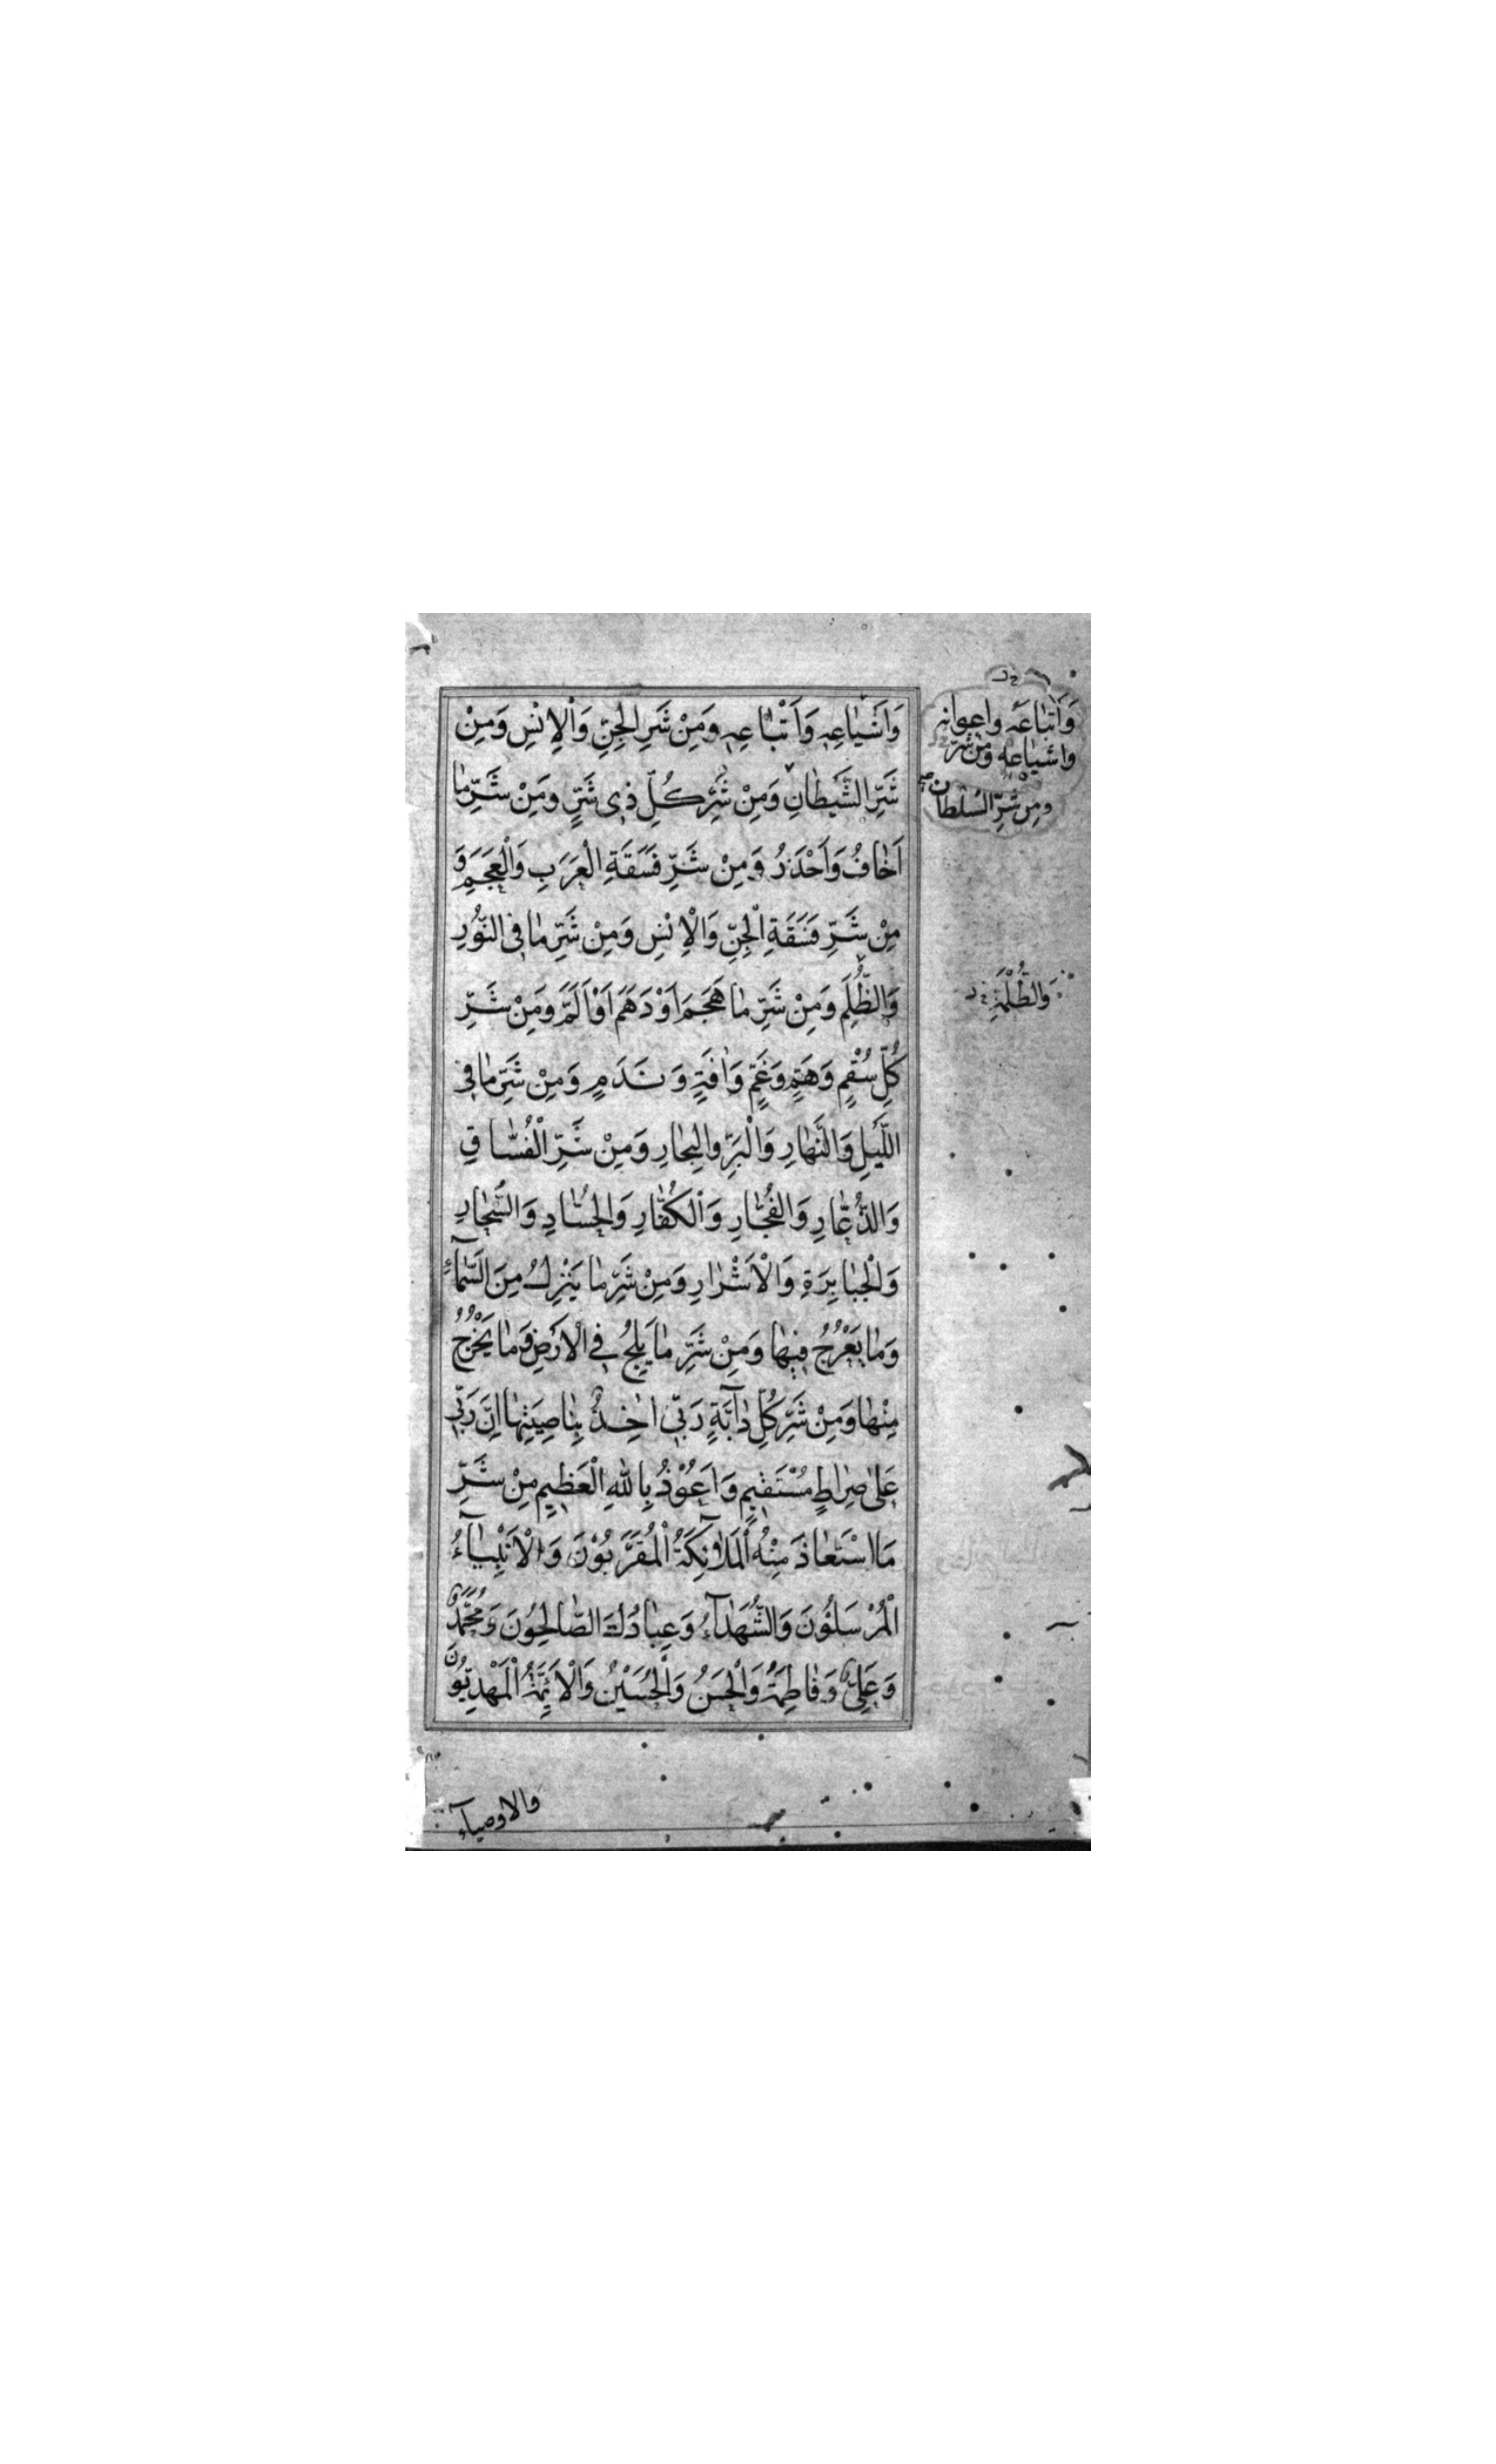 وَاَشْيٰاعِهٖ وَاَتْبٰاعِهٖ وَمِنْ شَرِّ الْجِنِّ وَالْاِنْسِ وَمِنْ
شَرِّ الشَّيْطٰانِ وَمِنْ شَرِّ كُلِّ ذٖى شَرٍّ وَمِنْ شَرِّ مٰا
اَخٰافُ وَاَحْذَرُ وَمِنْ شَرِّ فَسَقَةِ الْعَرَبِ وَالْعَجَمِ وَ
مِنْ شَرِّ فَسَقَةِ الْجِنِّ وَالْاِنْسِ وَمِنْ شَرِّ مٰا فِى النُّوْرِ
وَالظُّلَمِ وَمِنْ شَرِّ مٰا هَجَمَ اَوْ دَهَمَ اَوْ اَلَمَّ وَمِنْ شَرِّ
كُلِّ سُقْمٍ وَهَمٍّ وَغَمٍّ وَاٰفَةٍ وَنَدَمٍ وَمِنْ شَرِّ مٰا فِى
اللَّيْلِ وَالنَّهٰارِ وَالْبَرِّ وَالْبِحٰارِ وَمِنْ شَرِّ الْفُسّٰاقِ
وَالدُّعّٰارِ وَالْفُجّٰارِ وَالْكُفّٰارِ وَالْحُسّٰادِ وَالسُّحّٰارِ
وَالْجَبٰابِرَةِ وَالْاَشْرٰارِ وَمِنْ شَرِّ مٰا يَنْزِلُ مِنَ السَّمٰآءِ
وَمٰا يَعْرُجُ فٖيهٰا وَمِنْ شَرِّ مٰا يَلِجُ فِى الْاَرْضِ وَمٰا يَخْرُجُ
مِنْهٰا وَمِنْ شَرِّ كُلِّ دٰآبَّةٍ رَبّٖى اٰخِذٌ بِنٰاصِيَتِهٰا اِنَّ رَبّٖى
عَلٰى صِرٰاطٍ مُسْتَقٖيمٍ وَاَعُوْذُ بِاللّٰهِ الْعَظٖيمِ مِنْ شَرِّ
مَا اسْتَعٰاذَ مِنْهُ الْمَلٰآئِكَةُ الْمُقَرَّبُوْنَ وَالْاَنْبِيٰآءُ
الْمُرْسَلُوْنَ وَالشُّهَدٰآءُ وَعِبٰادُكَ الصّٰالِحُوْنَ وَمُحَمَّدٌ
وَعَلِىٌّ وَفٰاطِمَةُ وَالْحَسَنُ وَالْحُسَيْنُ وَالْاَئِمَّةُ الْمَهْدِيُّوْنَ
والاوصياء
وَاَتْبٰاعه واعوانه
واشياعه ومن شرّ
ومن شرّ السلطان
وَالظُّلْمَةِ